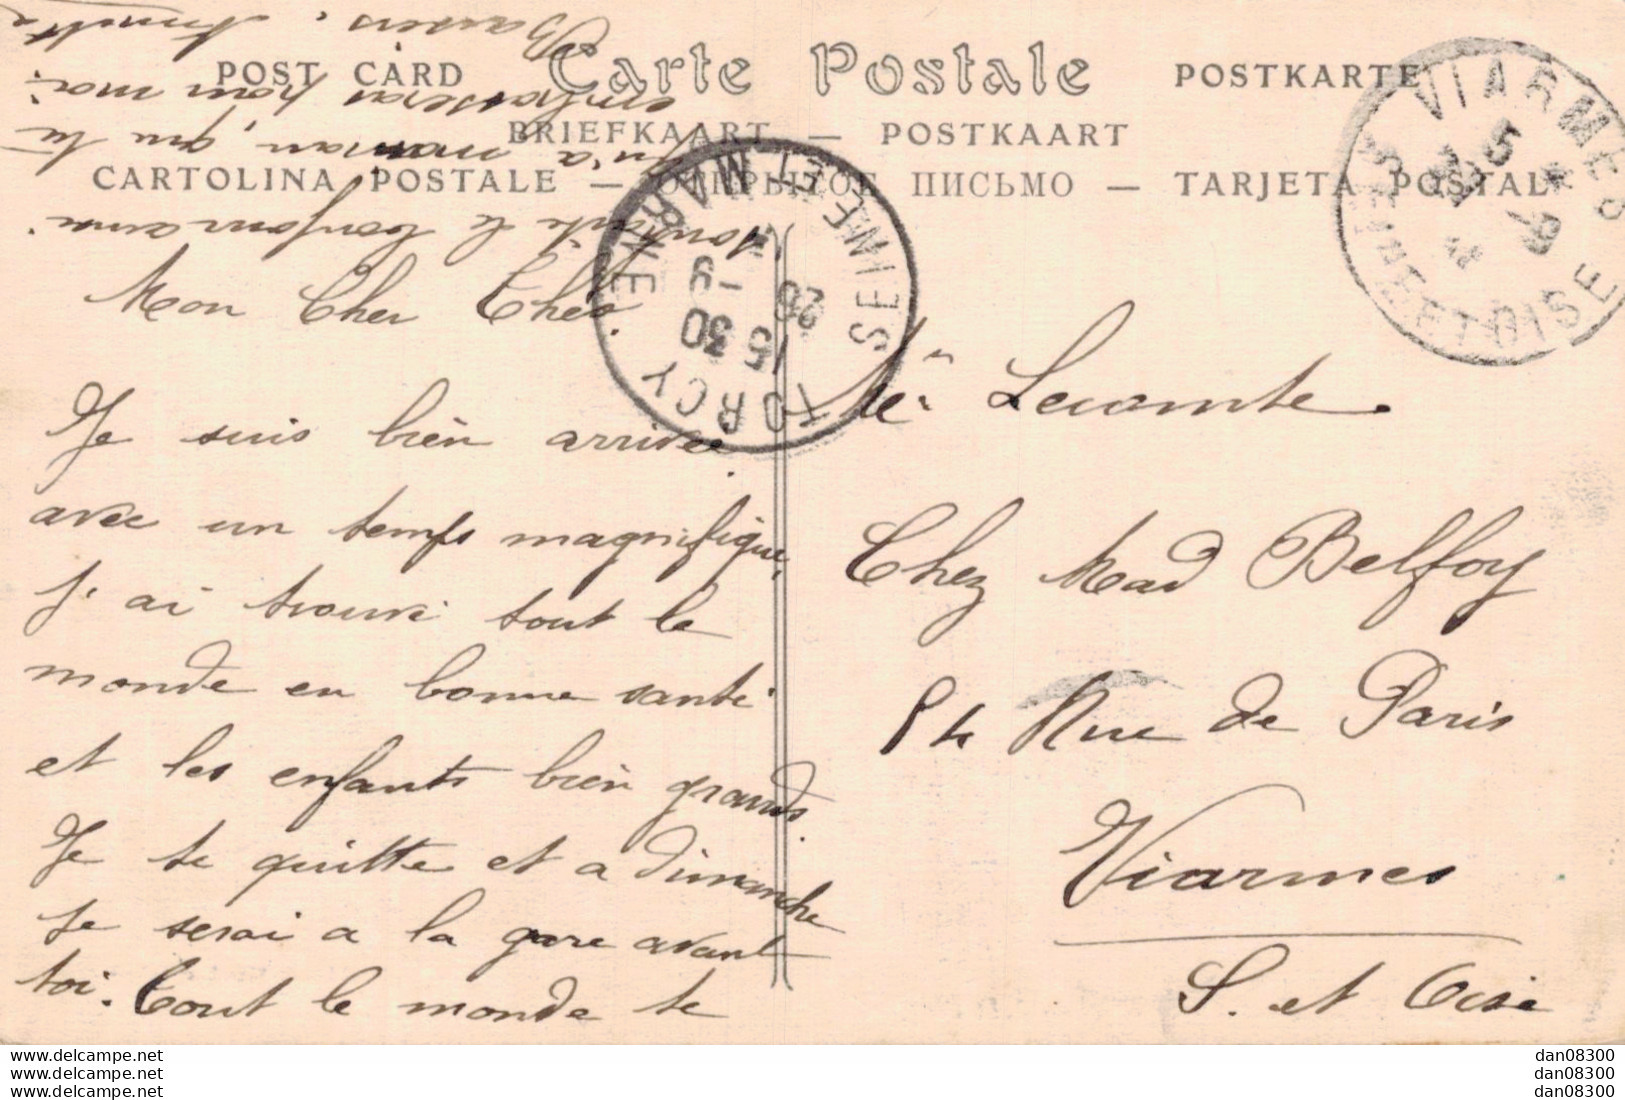 POST CARD Carte Postale POSTKARTE
BRIEFKAART — POSTKAART
CARTOLINA POSTALE — ОТКРЫТОЕ ПИСЬМО — TARJETA POSTAL
VIARMES
SEINE ET OISE
TORCY
SEINE ET MARNE
15 30
26 - 9
Mon Cher Théo.
Je suis bien arrivée
avec un temps magnifique,
j'ai trouvé tout le
monde en bonne santé
et les enfants bien grands.
Je te quitte et a dimanche
je serai a la gare avant
toi. Tout le monde te
souhaite le bonjour ainsi
qu'a maman, que tu
embrasseras pour moi.
Baisers,
Lecomte.
Chez Mad Belfoy
84 Rue de Paris
Viarmes
S. et Oise
www.delcampe.net
www.delcampe.net
www.delcampe.net
dan08300
dan08300
dan08300